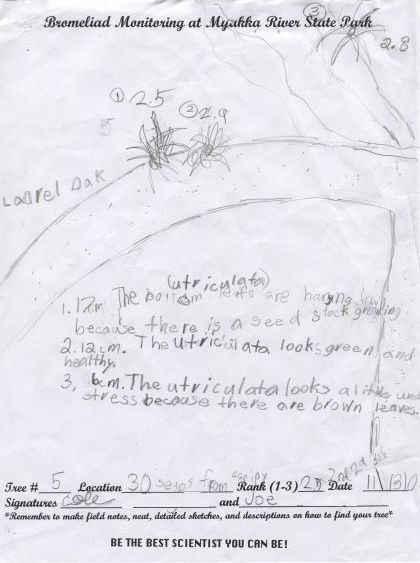 Bromeliad Monitoring at Myakka River State Park
③ 2.8
① 2.5
② 2.9
Laurel Oak
(utriculata)
1. 17cm The bottom leafs are hanging growing
because there is a seed stock
2. 12 cm. The utriculata looks green and
healthy.
3, 6cm. The utriculata looks a little und
stress because there are brown leaves.
Tree # 5 Location 30 from Rank (1-3) Date
Signatures Cole and Joe
*Remember to make field notes, neat, detailed sketches, and descriptions on how to find your tree*
BE THE BEST SCIENTIST YOU CAN BE!